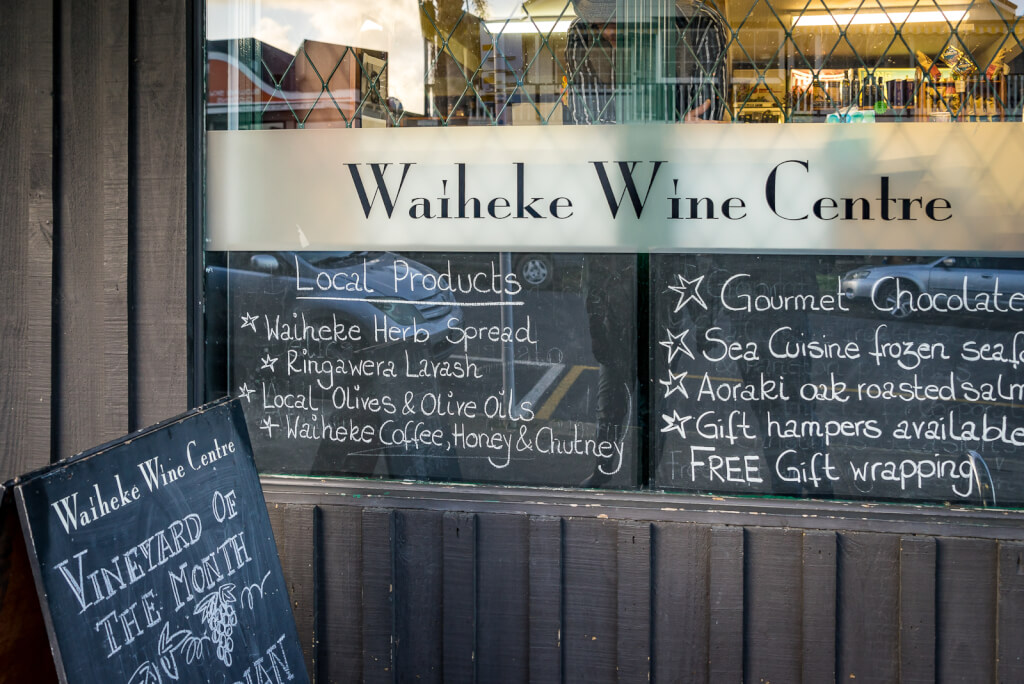 Waiheke Wine Centre
Local Products
Waiheke Herb Spread
Ringawera Lavash
Local Olives & Olive Oils
Waiheke Coffee, Honey & Chutney
Gourmet Chocolate
Sea Cuisine frozen
Aoraki oak roasted
Gift hampers available
FREE Gift wrapping
Waiheke Wine Centre
VINEYARD OF
THE MONTH